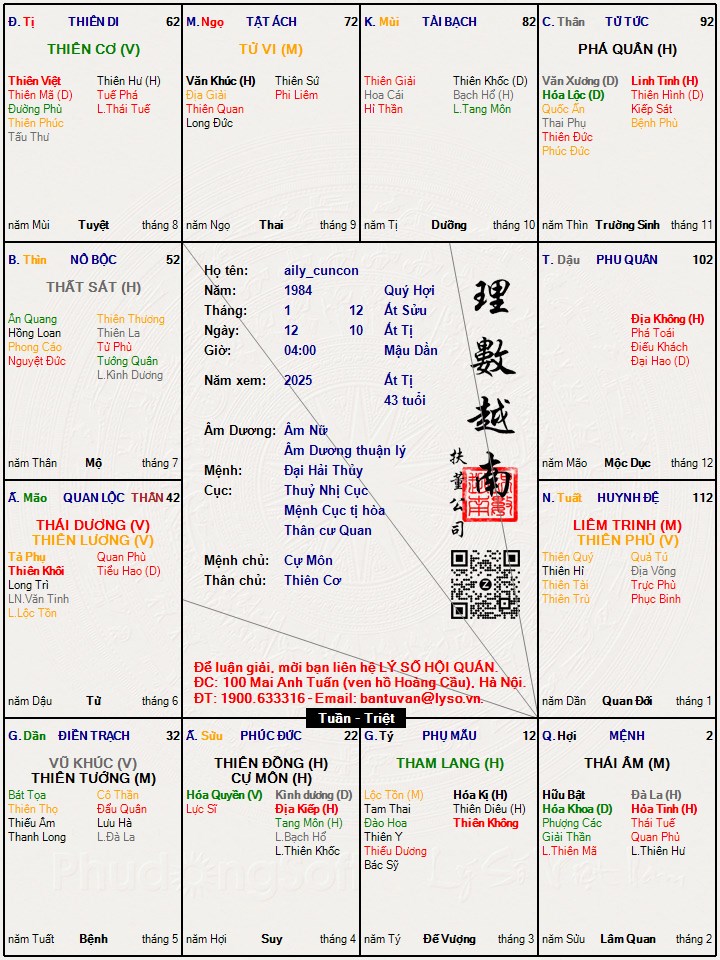 Đ. Tị THIÊN DI 62
THIÊN CƠ (V)
Thiên Việt Thiên Hư (H)
Thiên Mã (D) Tuế Phá
Đường Phù L.Thái Tuế
Thiên Phúc
Tấu Thư
năm Mùi Tuyệt tháng 8
M. Ngọ TẬT ÁCH 72
TỬ VI (M)
Văn Khúc (H) Thiên Sứ
Địa Giải Phi Liêm
Thiên Quan
Long Đức
năm Ngọ Thai tháng 9
K. Mùi TÀI BẠCH 82
Thiên Giải Thiên Khốc (D)
Hoa Cái Bạch Hổ (H)
Hỉ Thần L.Tang Môn
năm Tị Dưỡng tháng 10
C. Thân TỬ TỨC 92
PHÁ QUÂN (H)
Văn Xương (D) Linh Tinh (H)
Hóa Lộc (D) Thiên Hình (D)
Quốc Ấn Kiếp Sát
Thai Phụ Bệnh Phù
Thiên Đức
Phúc Đức
năm Thìn Trường Sinh tháng 11
B. Thìn NÔ BỘC 52
THẤT SÁT (H)
Ân Quang Thiên Thương
Hồng Loan Thiên La
Phong Cáo Tử Phù
Nguyệt Đức Tướng Quân
L.Kình Dương
năm Thân Mộ tháng 7
Họ tên: aily_cuncon
Năm: 1984 Quý Hợi
Tháng: 1 12 Ất Sửu
Ngày: 12 10 Ất Tị
Giờ: 04:00 Mậu Dần
Năm xem: 2025 Ất Tị
43 tuổi
Âm Dương: Âm Nữ
Âm Dương thuận lý
Mệnh: Đại Hải Thủy
Cục: Thuỷ Nhị Cục
Mệnh Cục tị hòa
Thân cư Quan
Mệnh chủ: Cự Môn
Thân chủ: Thiên Cơ
理數越南
扶董公司
Để luận giải, mời bạn liên hệ LÝ SỐ HỘI QUÁN.
ĐC: 100 Mai Anh Tuấn (ven hồ Hoàng Cầu), Hà Nội.
ĐT: 1900.633316 - Email: bantuvan@lyso.vn.
T. Dậu PHU QUÂN 102
Địa Không (H)
Phá Toái
Điếu Khách
Đại Hao (D)
năm Mão Mộc Dục tháng 12
Ấ. Mão QUAN LỘC THÂN 42
THÁI DƯƠNG (V)
THIÊN LƯƠNG (V)
Tả Phụ Quan Phù
Thiên Khôi Tiểu Hao (D)
Long Trì
LN.Văn Tinh
L.Lộc Tồn
năm Dậu Tử tháng 6
N. Tuất HUYNH ĐỆ 112
LIÊM TRINH (M)
THIÊN PHỦ (V)
Thiên Quý Quả Tú
Thiên Hỉ Địa Võng
Thiên Tài Trực Phù
Thiên Trù Phục Binh
năm Dần Quan Đới tháng 1
Tuần - Triệt
G. Dần ĐIỀN TRẠCH 32
VŨ KHÚC (V)
THIÊN TƯỚNG (M)
Bát Tọa Cô Thần
Thiên Thọ Đẩu Quân
Thiếu Âm Lưu Hà
Thanh Long L.Đà La
năm Tuất Bệnh tháng 5
Ấ. Sửu PHÚC ĐỨC 22
THIÊN ĐỒNG (H)
CỰ MÔN (H)
Hóa Quyền (V) Kình dương (D)
Lực Sĩ Địa Kiếp (H)
Tang Môn (H)
L.Bạch Hổ
L.Thiên Khốc
năm Hợi Suy tháng 4
G. Tý PHỤ MẪU 12
THAM LANG (H)
Lộc Tồn (M) Hóa Kị (H)
Tam Thai Thiên Diêu (H)
Đào Hoa Thiên Không
Thiên Y
Thiếu Dương
Bác Sỹ
năm Tý Đế Vượng tháng 3
Q. Hợi MỆNH 2
THÁI ÂM (M)
Hữu Bật Đà La (H)
Hóa Khoa (D) Hỏa Tinh (H)
Phượng Các Thái Tuế
Giải Thần Quan Phủ
L.Thiên Mã L.Thiên Hư
năm Sửu Lâm Quan tháng 2